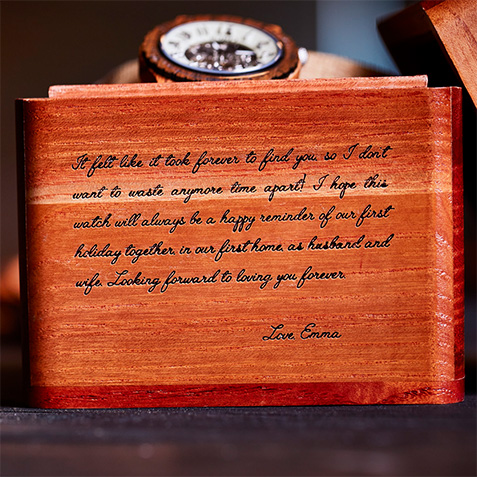 It felt like it took forever to find you, so I don't
want to waste anymore time apart! I hope this
watch will always be a happy reminder of our first
holiday together, in our first home, as husband and
wife. Looking forward to loving you forever.
Love, Emma